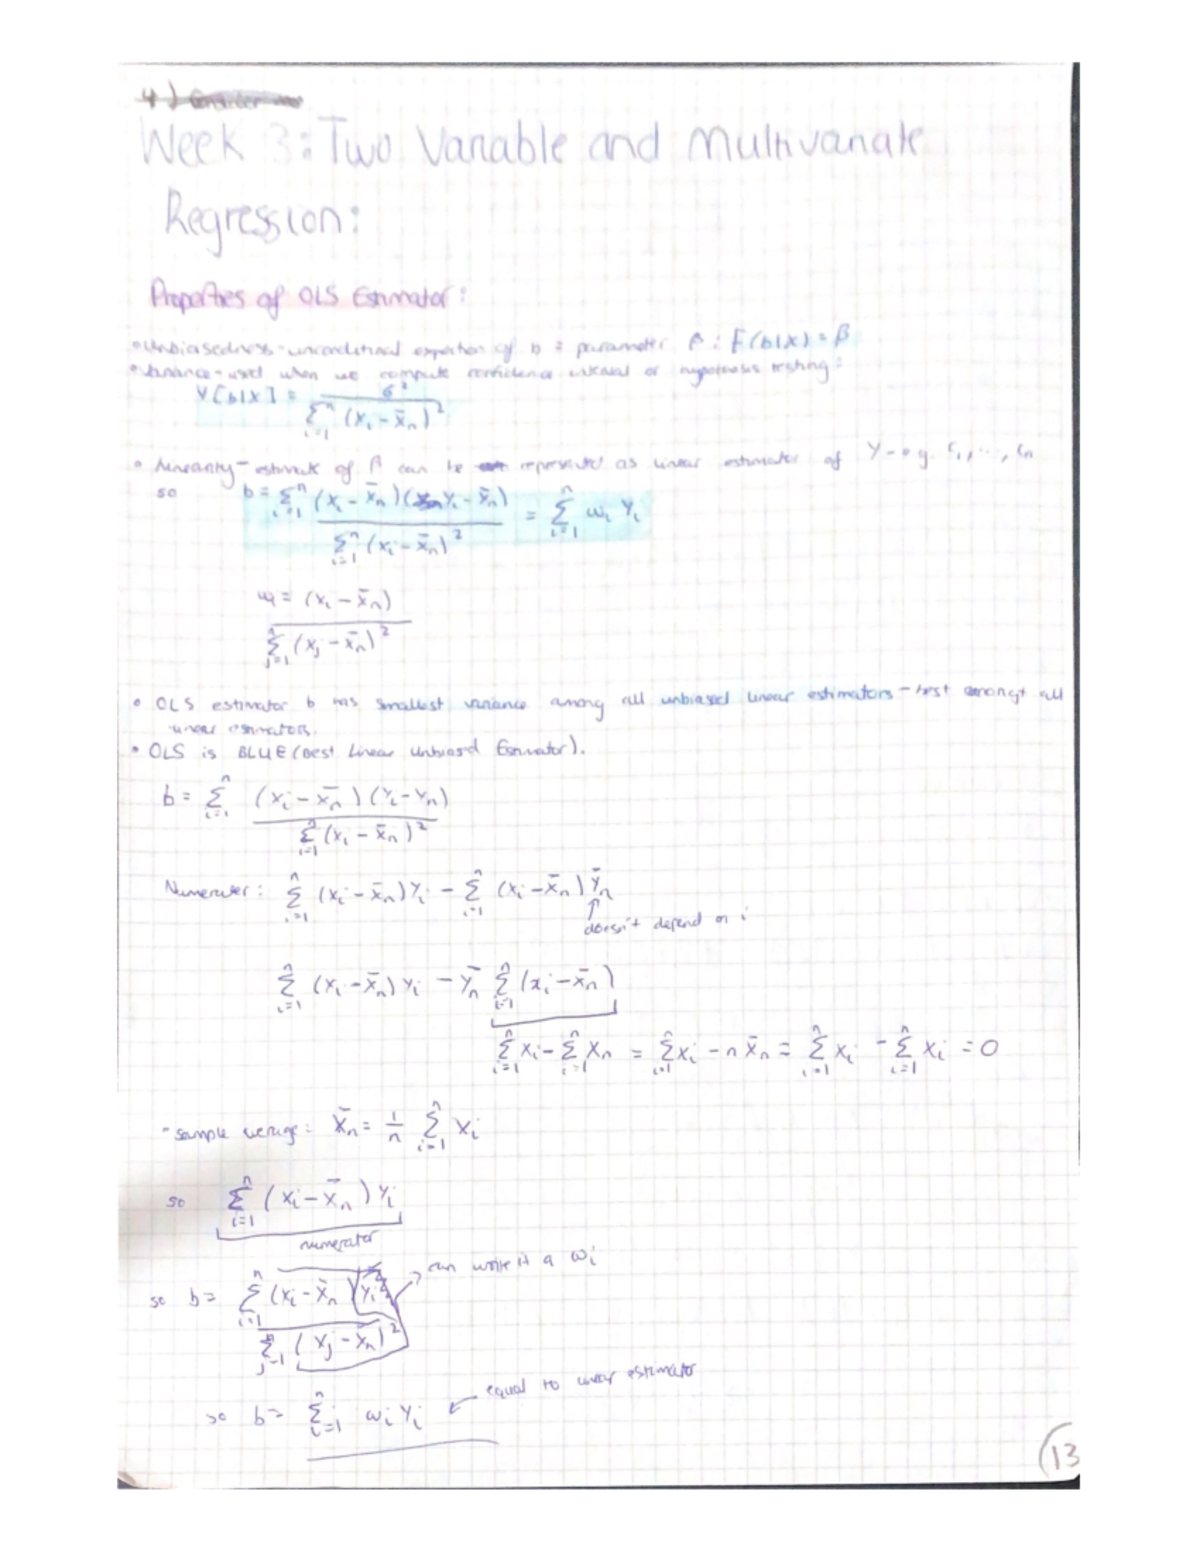 4)
Week 3: Two Variable and Multivariate
Regression:
Properties of OLS Estimator:
• Unbiasedness - unconditional expection of b = parameter β : E(b|X) = β
• Variance - used when we compute confidence interval or hypothesis testing:
V[b|X] = σ² / Σⁿᵢ₌₁ (xᵢ - x̄ₙ)²
• Linearity - estimate of β can be represented as linear estimator of Y → e.g. c₁, ..., cₙ
so b = Σⁿᵢ₌₁ (xᵢ - x̄ₙ)(Yᵢ - ȳₙ) / Σⁿᵢ₌₁ (xᵢ - x̄ₙ)² = Σⁿᵢ₌₁ wᵢ Yᵢ
wᵢ = (xᵢ - x̄ₙ) / Σⁿⱼ₌₁ (xⱼ - x̄ₙ)²
• OLS estimator b has smallest variance among all unbiased linear estimators - best amongt all
linear estimators.
• OLS is BLUE (Best Linear Unbiased Estimator).
b = Σⁿᵢ₌₁ (xᵢ - x̄ₙ)(Yᵢ - Yₙ) / Σⁿᵢ₌₁ (xᵢ - x̄ₙ)²
Numerater: Σⁿᵢ₌₁ (xᵢ - x̄ₙ)Yᵢ - Σⁿᵢ₌₁ (xᵢ - x̄ₙ) Ȳₙ
doesn't depend on i
Σⁿᵢ₌₁ (xᵢ - x̄ₙ) Yᵢ - Ȳₙ Σⁿᵢ₌₁ (xᵢ - x̄ₙ)
Σⁿᵢ₌₁ xᵢ - Σⁿᵢ₌₁ xₙ = Σⁿᵢ₌₁ xᵢ - n x̄ₙ = Σⁿᵢ₌₁ xᵢ - Σⁿᵢ₌₁ xᵢ = 0
sample average: X̄ₙ = 1/n Σⁿᵢ₌₁ xᵢ
so Σⁿᵢ₌₁ (xᵢ - x̄ₙ) Yᵢ
numerator
can write it a wᵢ
so b = Σⁿᵢ₌₁ (xᵢ - x̄ₙ) Yᵢ / Σⁿⱼ₌₁ (xⱼ - x̄ₙ)²
equal to linear estimator
so b = Σⁿᵢ₌₁ wᵢ Yᵢ
13